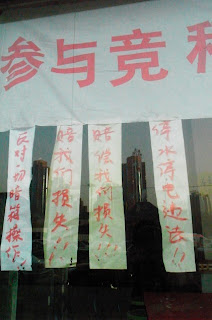 参与竞
反对一切暗箱操作!!
赔我们损失!!!
赔偿我们损失!!!
停水停电违法!!!